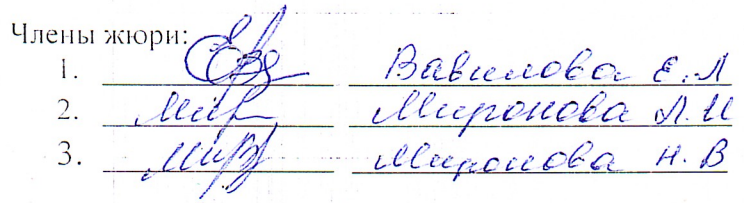 Члены жюри:
1. Вавилова Е.Л
2. Миронова Л.И
3. Миронова Н.В